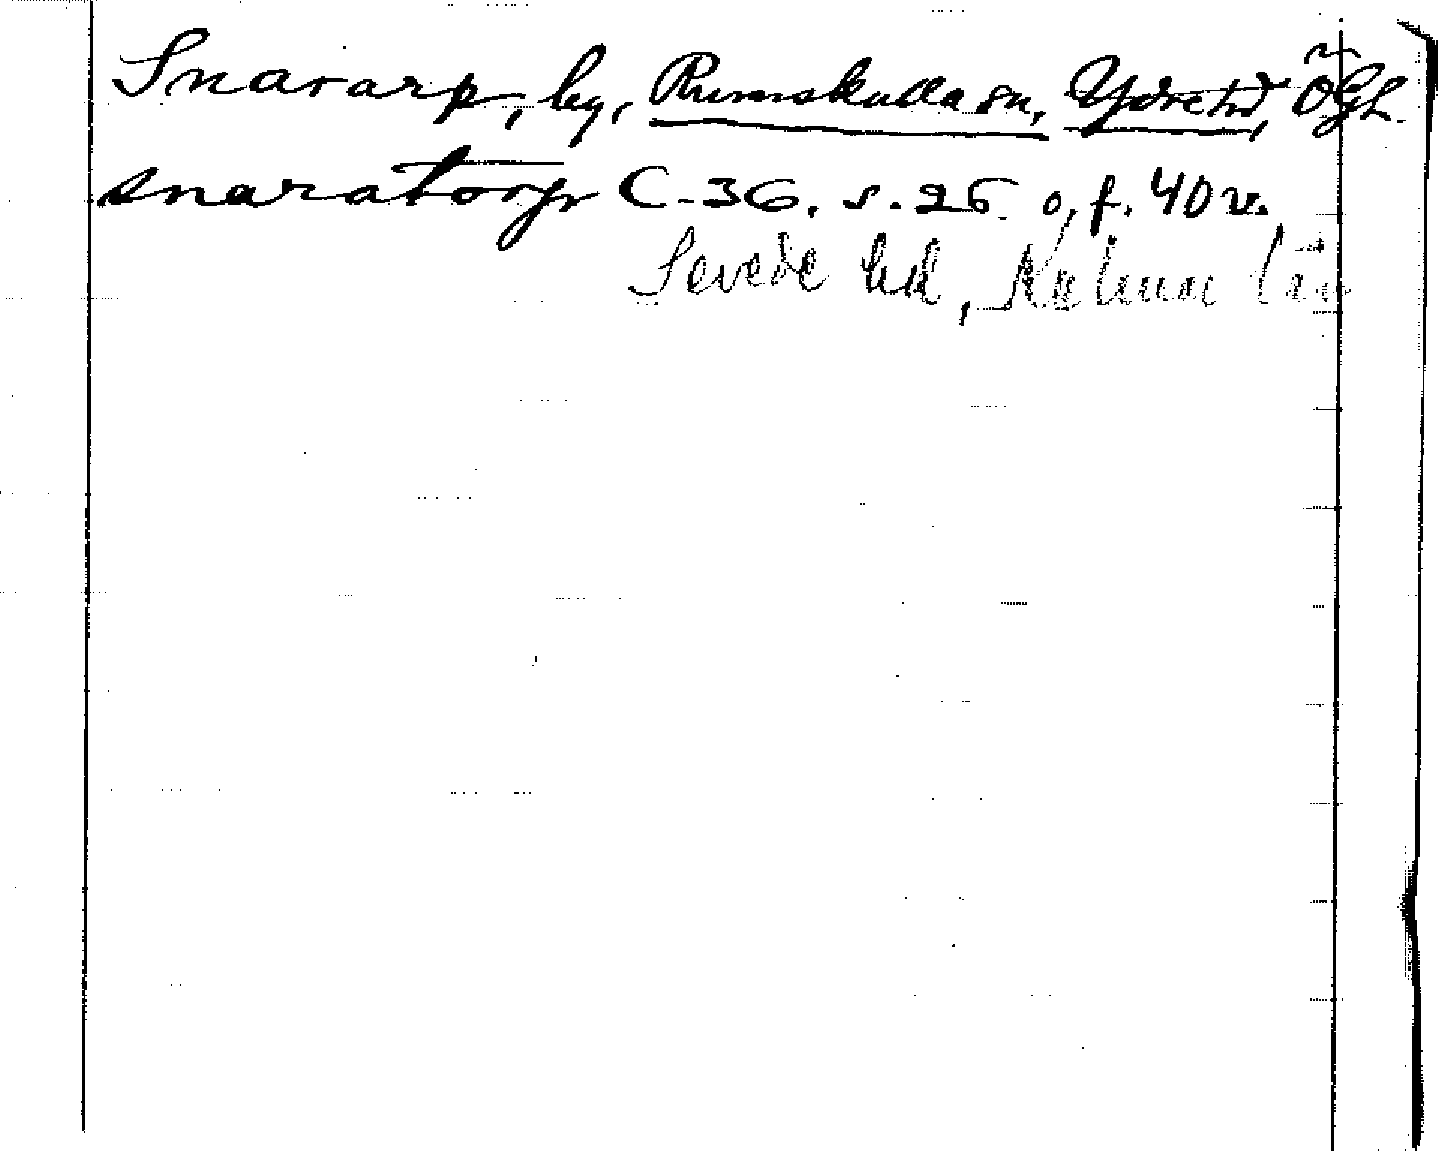 Snararp, by, Rumskulla sn, Ydre hd, Ögl.
snaratorp C-36. s. 26 o, f. 40 v.
Sevede hd, Kalmar län